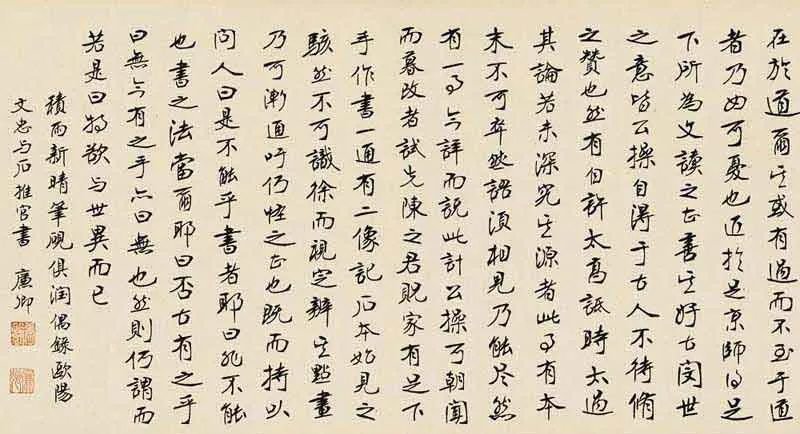 在於道爾其或有過而不至于道
者乃可憂也近於京師得足
下所為文讀之甚善其好古閔世
之意皆公操自得于古人不待脩
之贊也然有自許太高詆時太過
其論若未深究其源者此事有本
末不可卒然語須相見乃能盡然
有一事今詳而說此計公操可朝聞
而暮改者試先陳之君貺家有足下
手作書一通有二像記石本始見之
駭然不可識徐而視定辨其點畫
乃可漸通吁何怪之甚也既而持以
問人曰是不能乎書者耶曰非不能
也書之法當爾耶曰否古有之乎
曰無今有之乎亦曰無也然則何謂而
若是曰特欲与世異而已
積雨新晴筆硯俱潤偶錄歐陽
文忠与石推官書 廣卿